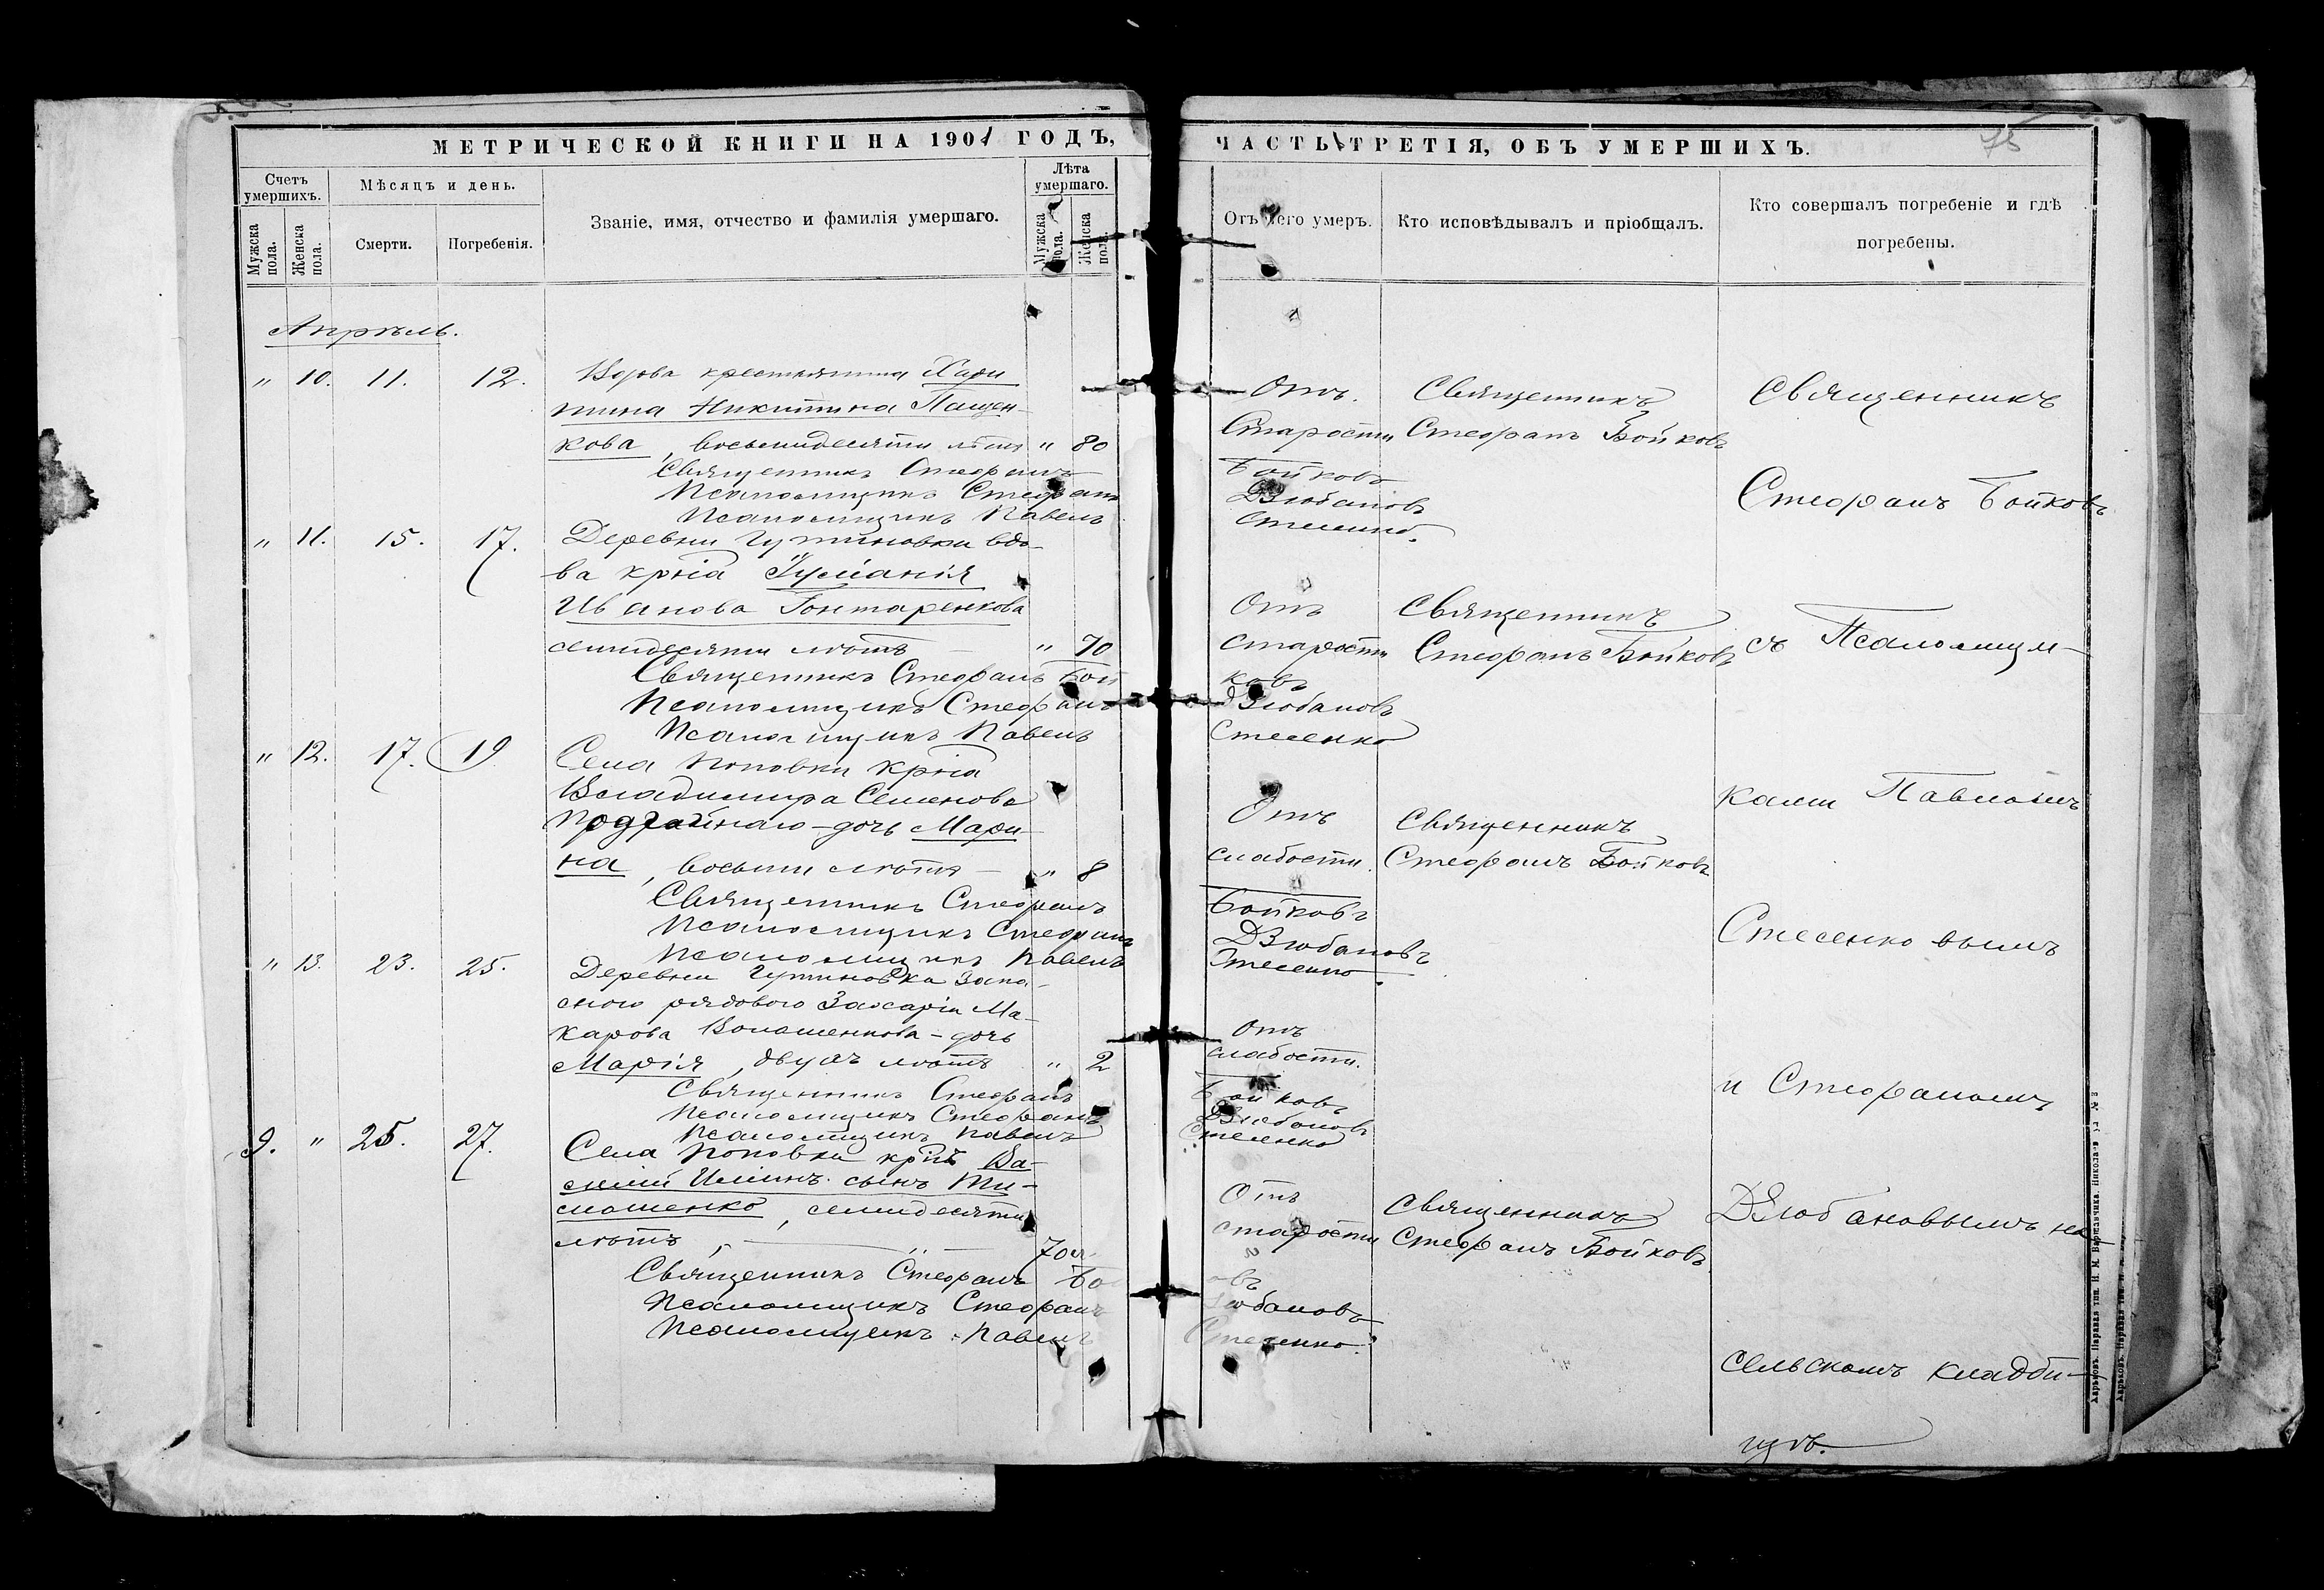 МЕТРИЧЕСКОЙ КНИГИ НА 1901 ГОДЪ,
Счетъ умершихъ.
Мужска пола.
Женска пола.
Мѣсяцъ и день.
Смерти.
Погребенія.
Званіе, имя, отчество и фамилія умершаго.
Лѣта умершаго.
Мужска пола.
Женска пола.
Апрѣль.
" 10. 11. 12. Вдова крестьянина Хари
тина Никитина Пащен-
кова, восьмидесяти лѣтъ " 80
Священникъ Стефанъ
Псаломщикъ Стефанъ
Псаломщикъ Павелъ
" 11. 15. 17. Деревни Гутиновки вдо-
ва крнка Іуліанія
Иванова Гонтаренкова
семидесяти лѣтъ — " 70
Священникъ Стефанъ Бой
Псаломщикъ Стефанъ
Псаломщикъ Павелъ
" 12. 17. 19. Села Поповки крна
Владиміра Семенова
дочь Мари-
на, восьми лѣтъ — " 8
Священникъ Стефанъ
Псаломщикъ Стефанъ
Псаломщикъ Павелъ
" 13. 23. 25. Деревни Гутиновка Запа-
сного рядового Захарія Ма-
карова Волошенкова - дочь
Марія, двухъ лѣтъ " 2
Священникъ Стефанъ
Псаломщикъ Стефанъ
Псаломщикъ Павелъ
9. " 25. 27. Села Поповки крнъ Ва-
силій Илiинъ сынъ Ти-
мошенко, семидесяти
лѣтъ, — " — 70
Священникъ Стефанъ Бо
Псаломщикъ Стефанъ
Псаломщикъ Павелъ
ЧАСТЬ ТРЕТІЯ, ОБЪ УМЕРШИХЪ.
75
Отъ чего умеръ.
Кто исповѣдывалъ и пріобщалъ.
Кто совершалъ погребеніе и гдѣ погребены.
Отъ. Священникъ
Старости Стефанъ Бойковъ
Бойковъ
Дзюбановъ
Стеценко.
Отъ Священникъ
старости Стефанъ Бойковъ
ковъ
Дзюбановъ
Стеценко
Отъ Священникъ
слабости. Стефанъ Бойковъ
Бойковъ
Дзюбановъ
Стеценко
Отъ
слабости.
Бойковъ
Дзюбановъ
Стеценко
Отъ Священникъ
старости Стефанъ Бойковъ
овъ
юбановъ
Стеценко.
Священникъ
Стефанъ Бойковъ
съ Псаломщи-
ками Павломъ
Стесенковымъ
и Стефаномъ
Дзюбановымъ на
сельскомъ кладби-
щѣ.